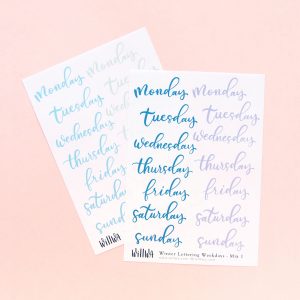 monday monday
tuesday tuesday
wednesday wednesday
thursday thursday
friday friday
saturday saturday
sunday sunday
Winter Lettering Weekdays - Mix 1
monday monday
tuesday
wednesday
thursday
friday
saturday
sunday